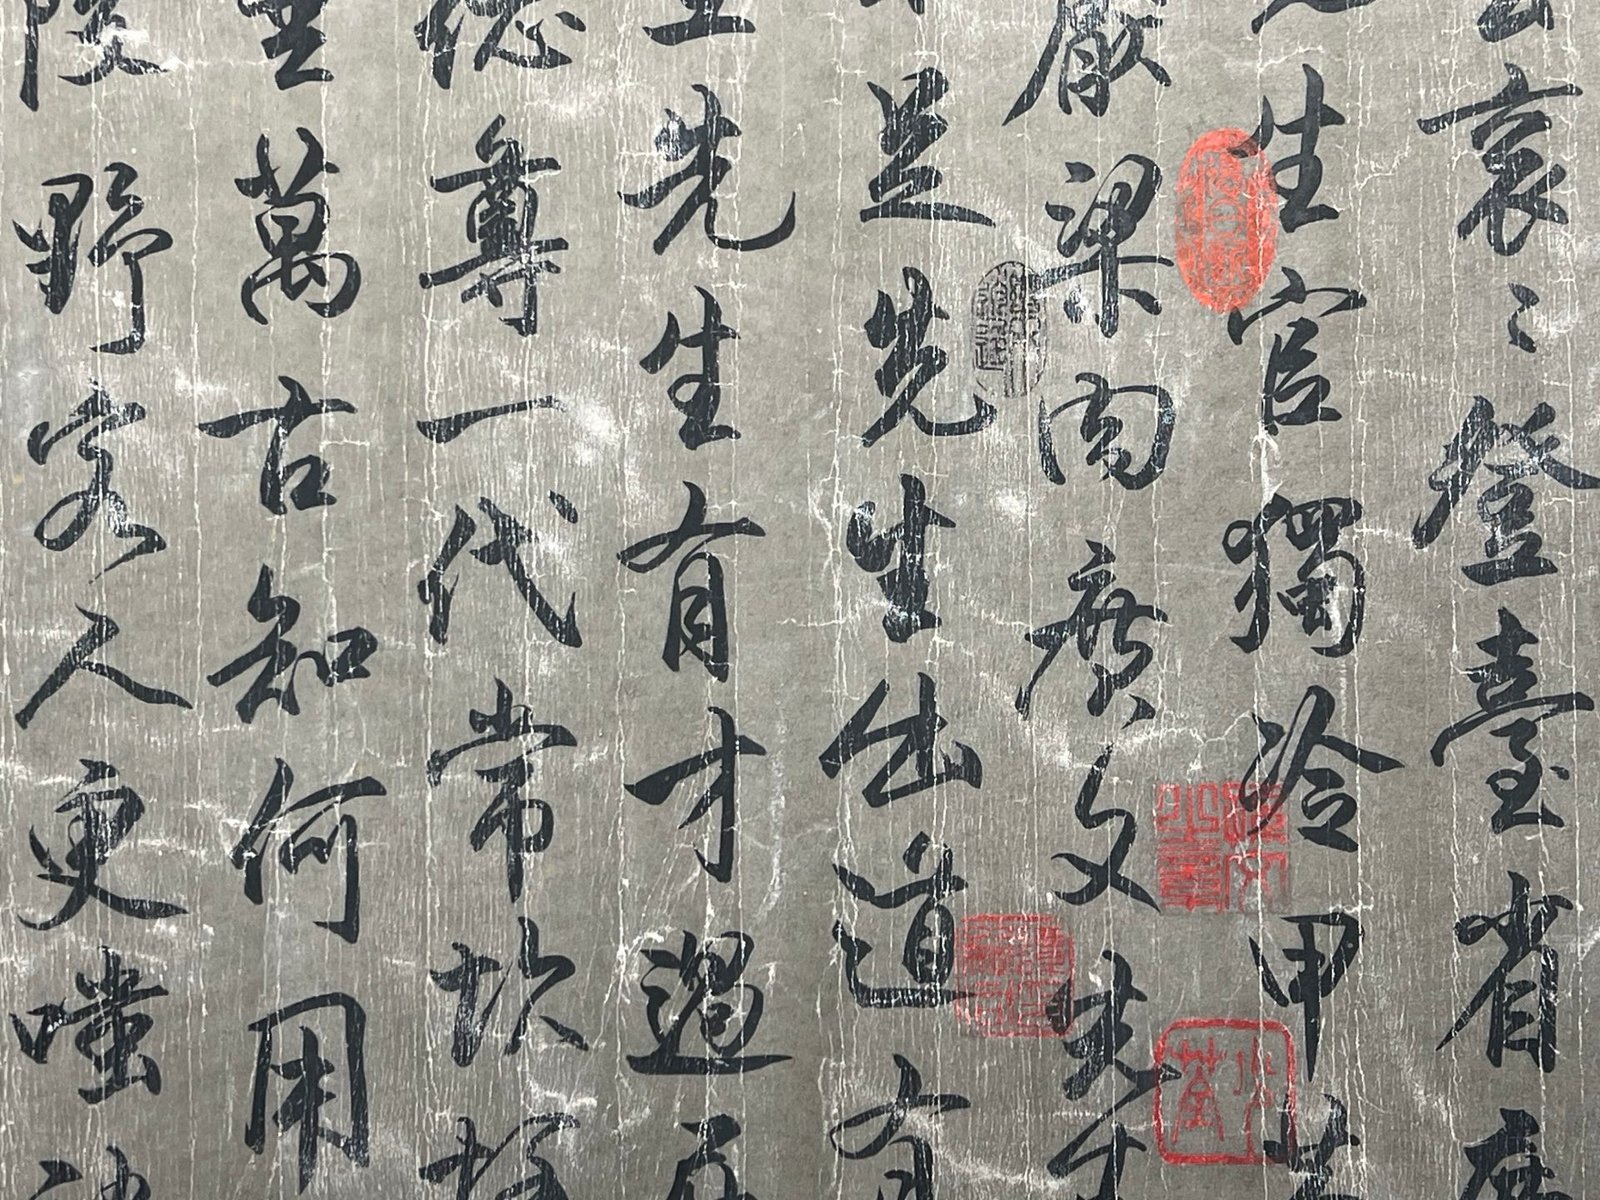 衮〻登臺省
生官獨冷甲第
厭梁肉廣文先生
足先生出道有
先生有才過
德尊一代常坎軻
垂萬古知何用
陵野客人更嗤